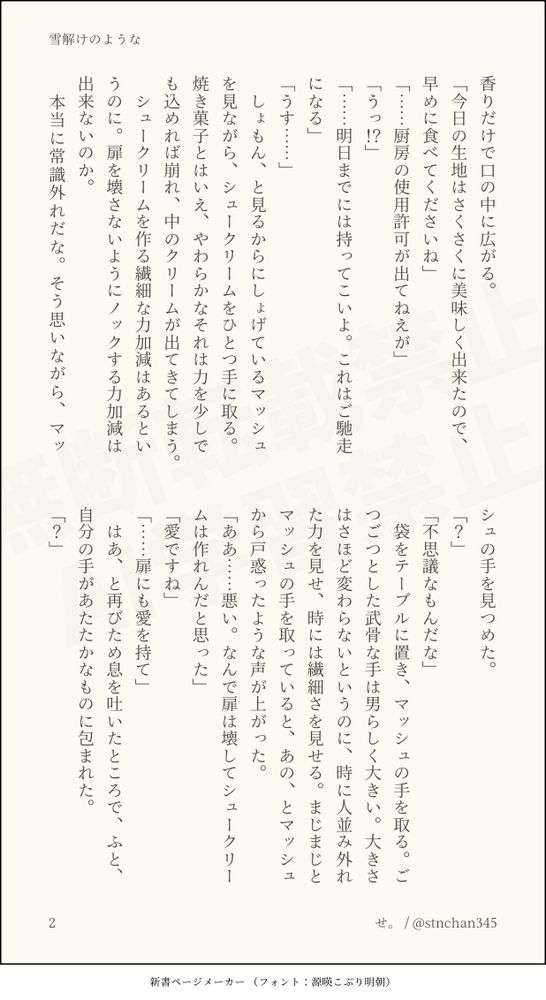 雪解けのような
香りだけで口の中に広がる。
「今日の生地はさくさくに美味しく出来たので、
早めに食べてくださいね」
「……厨房の使用許可が出てねえが」
「うっ!?」
「……明日までには持ってこいよ。これはご馳走
になる」
「うす……」
　しょもん、と見るからにしょげているマッシュ
を見ながら、シュークリームをひとつ手に取る。
焼き菓子とはいえ、やわらかなそれは力を少しで
も込めれば崩れ、中のクリームが出てきてしまう。
　シュークリームを作る繊細な力加減はあるとい
うのに。扉を壊さないようにノックする力加減は
出来ないのか。
　本当に常識外れだな。そう思いながら、マッ
シュの手を見つめた。
「？」
「不思議なもんだな」
　袋をテーブルに置き、マッシュの手を取る。ご
つごつとした武骨な手は男らしく大きい。大きさ
はさほど変わらないというのに、時に人並み外れ
た力を見せ、時には繊細さを見せる。まじまじと
マッシュの手を取っていると、あの、とマッシュ
から戸惑ったような声が上がった。
「ああ……悪い。なんで扉は壊してシュークリー
ムは作れんだと思った」
「愛ですね」
「……扉にも愛を持て」
　はあ、と再びため息を吐いたところで、ふと、
自分の手があたたかなものに包まれた。
「？」
2
せ。 / @stnchan345
無断転載禁止
AI学習禁止
新書ページメーカー （フォント：源暎こぶり明朝）